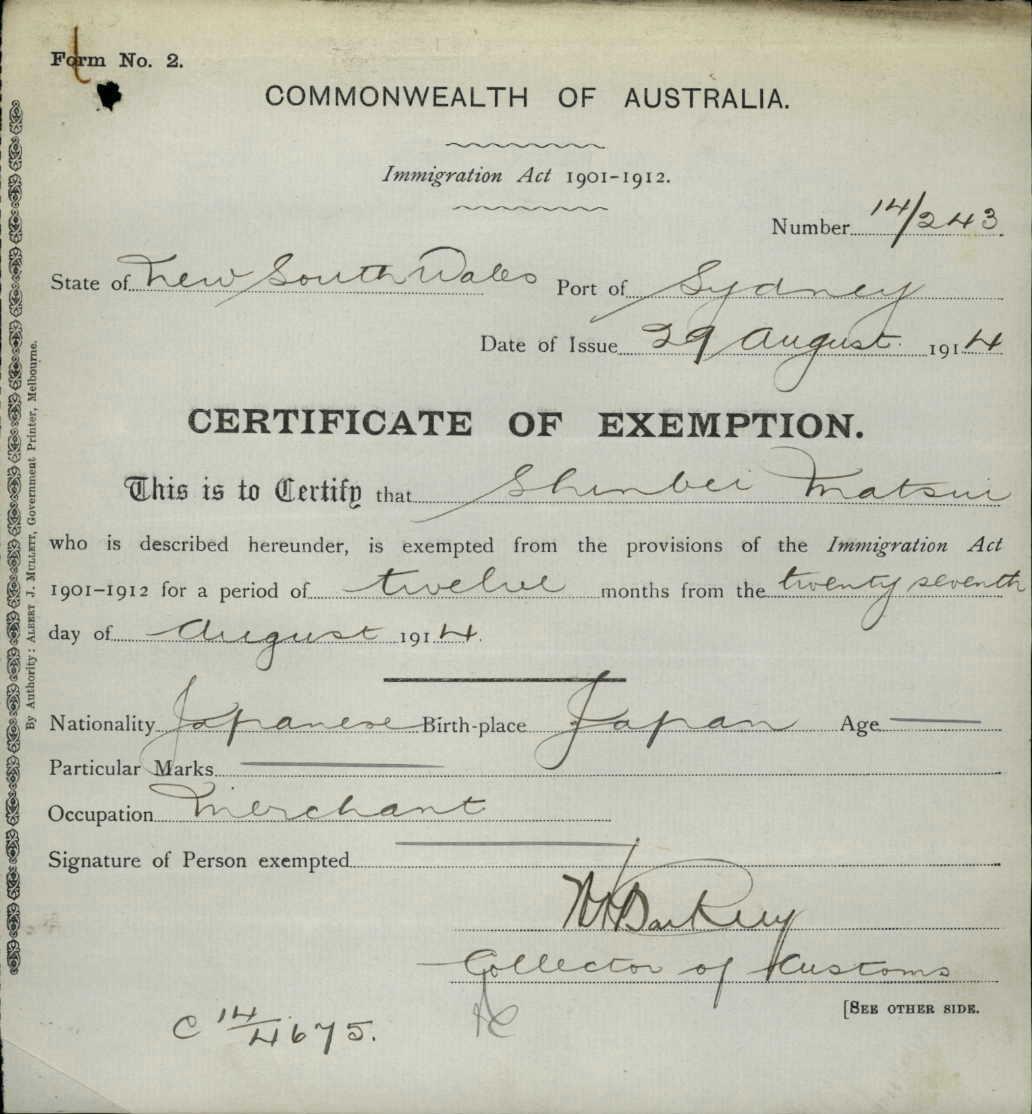 Form No. 2.
COMMONWEALTH OF AUSTRALIA.
Immigration Act 1901-1912.
Number 14/243
State of New South Wales Port of Sydney
Date of Issue 29 August 1914
CERTIFICATE OF EXEMPTION.
This is to Certify that Shinbei Matsui
who is described hereunder, is exempted from the provisions of the Immigration Act
1901-1912 for a period of twelve months from the twenty seventh
day of August 1914.
Nationality Japanese Birth-place Japan Age
Particular Marks
Occupation Merchant
Signature of Person exempted
Collector of Customs
[SEE OTHER SIDE.
C 14/4675.
By Authority: ALBERT J. MULLETT, Government Printer, Melbourne.